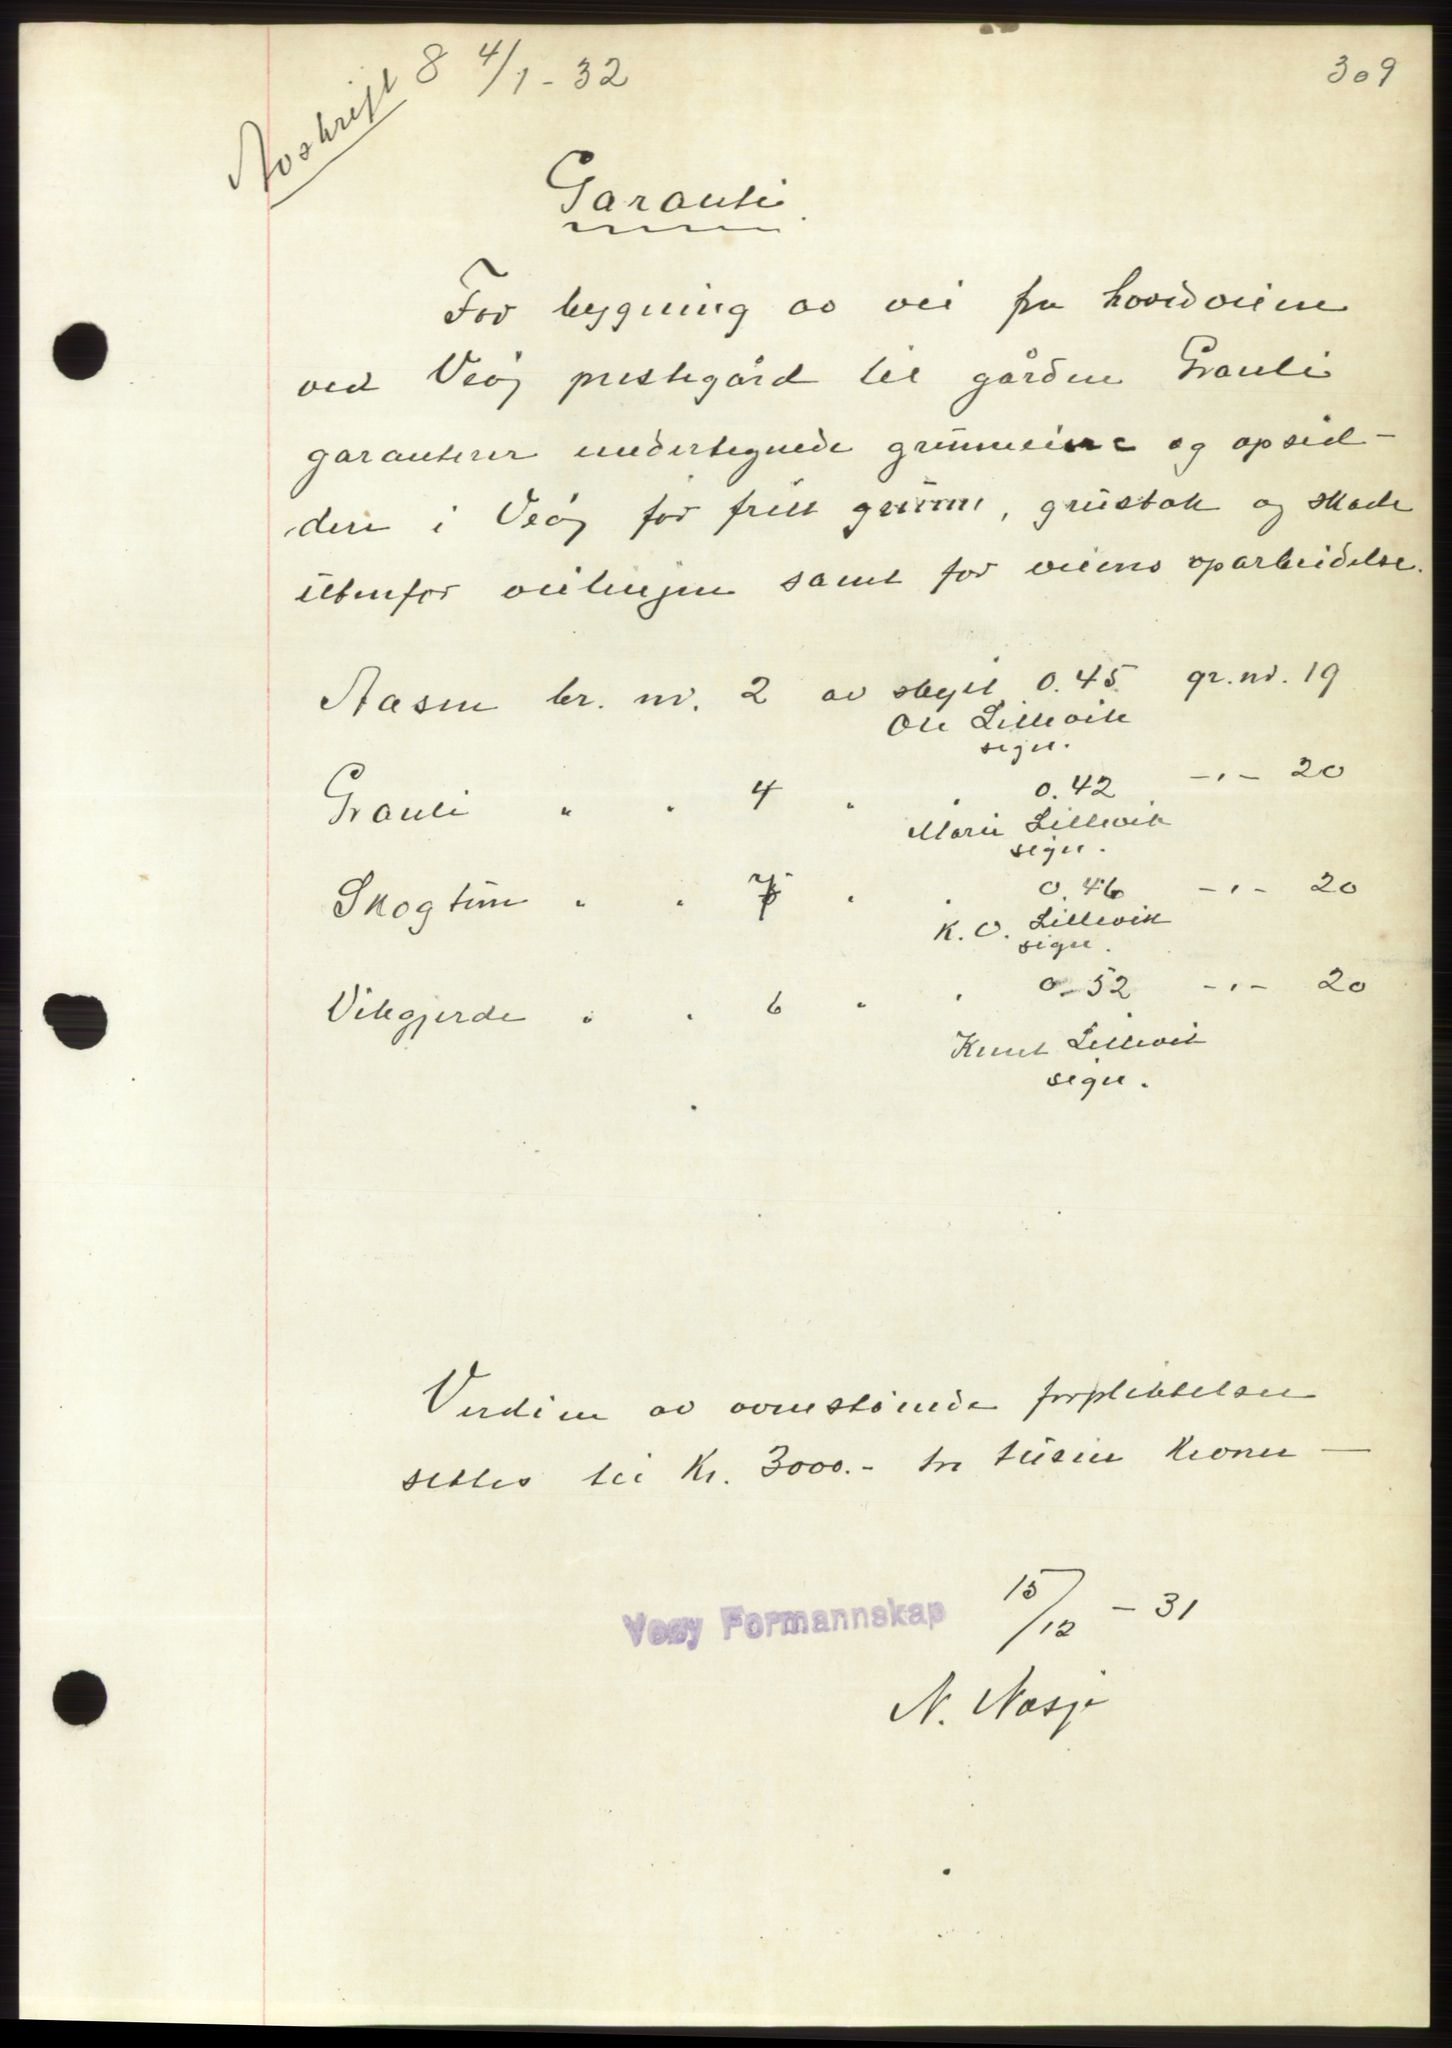 Avskrift 8 4/1 - 32
309
Garanti
For bygning av vei fra hovedveien
ved Veøy prestegård til gården Grauli
garanterer undertegnede grunneiere og opsid-
dere i Veøy for fritt grunn, grustak og skade
utenfor veilinjen samt for veiens oparbeidelse.
Aasen br. nr. 2 av skyld 0.45 gr. nr. 19
Ole Lillevik
sign.
Grauli " " 4 " " 0.42 -"- 20
Marie Lillevik
sign.
Skogtun " " 7 " " 0.46 -"- 20
K. O. Lillevik
sign.
Vikegjerde " " 6 " " 0-52 -"- 20
Knut Lillevik
sign.
Verdien av ovenstående forpliktelser
settes til Kr. 3000.- tre tusen kroner —
Veøy Formannskap 15/12 - 31
N. Nasje